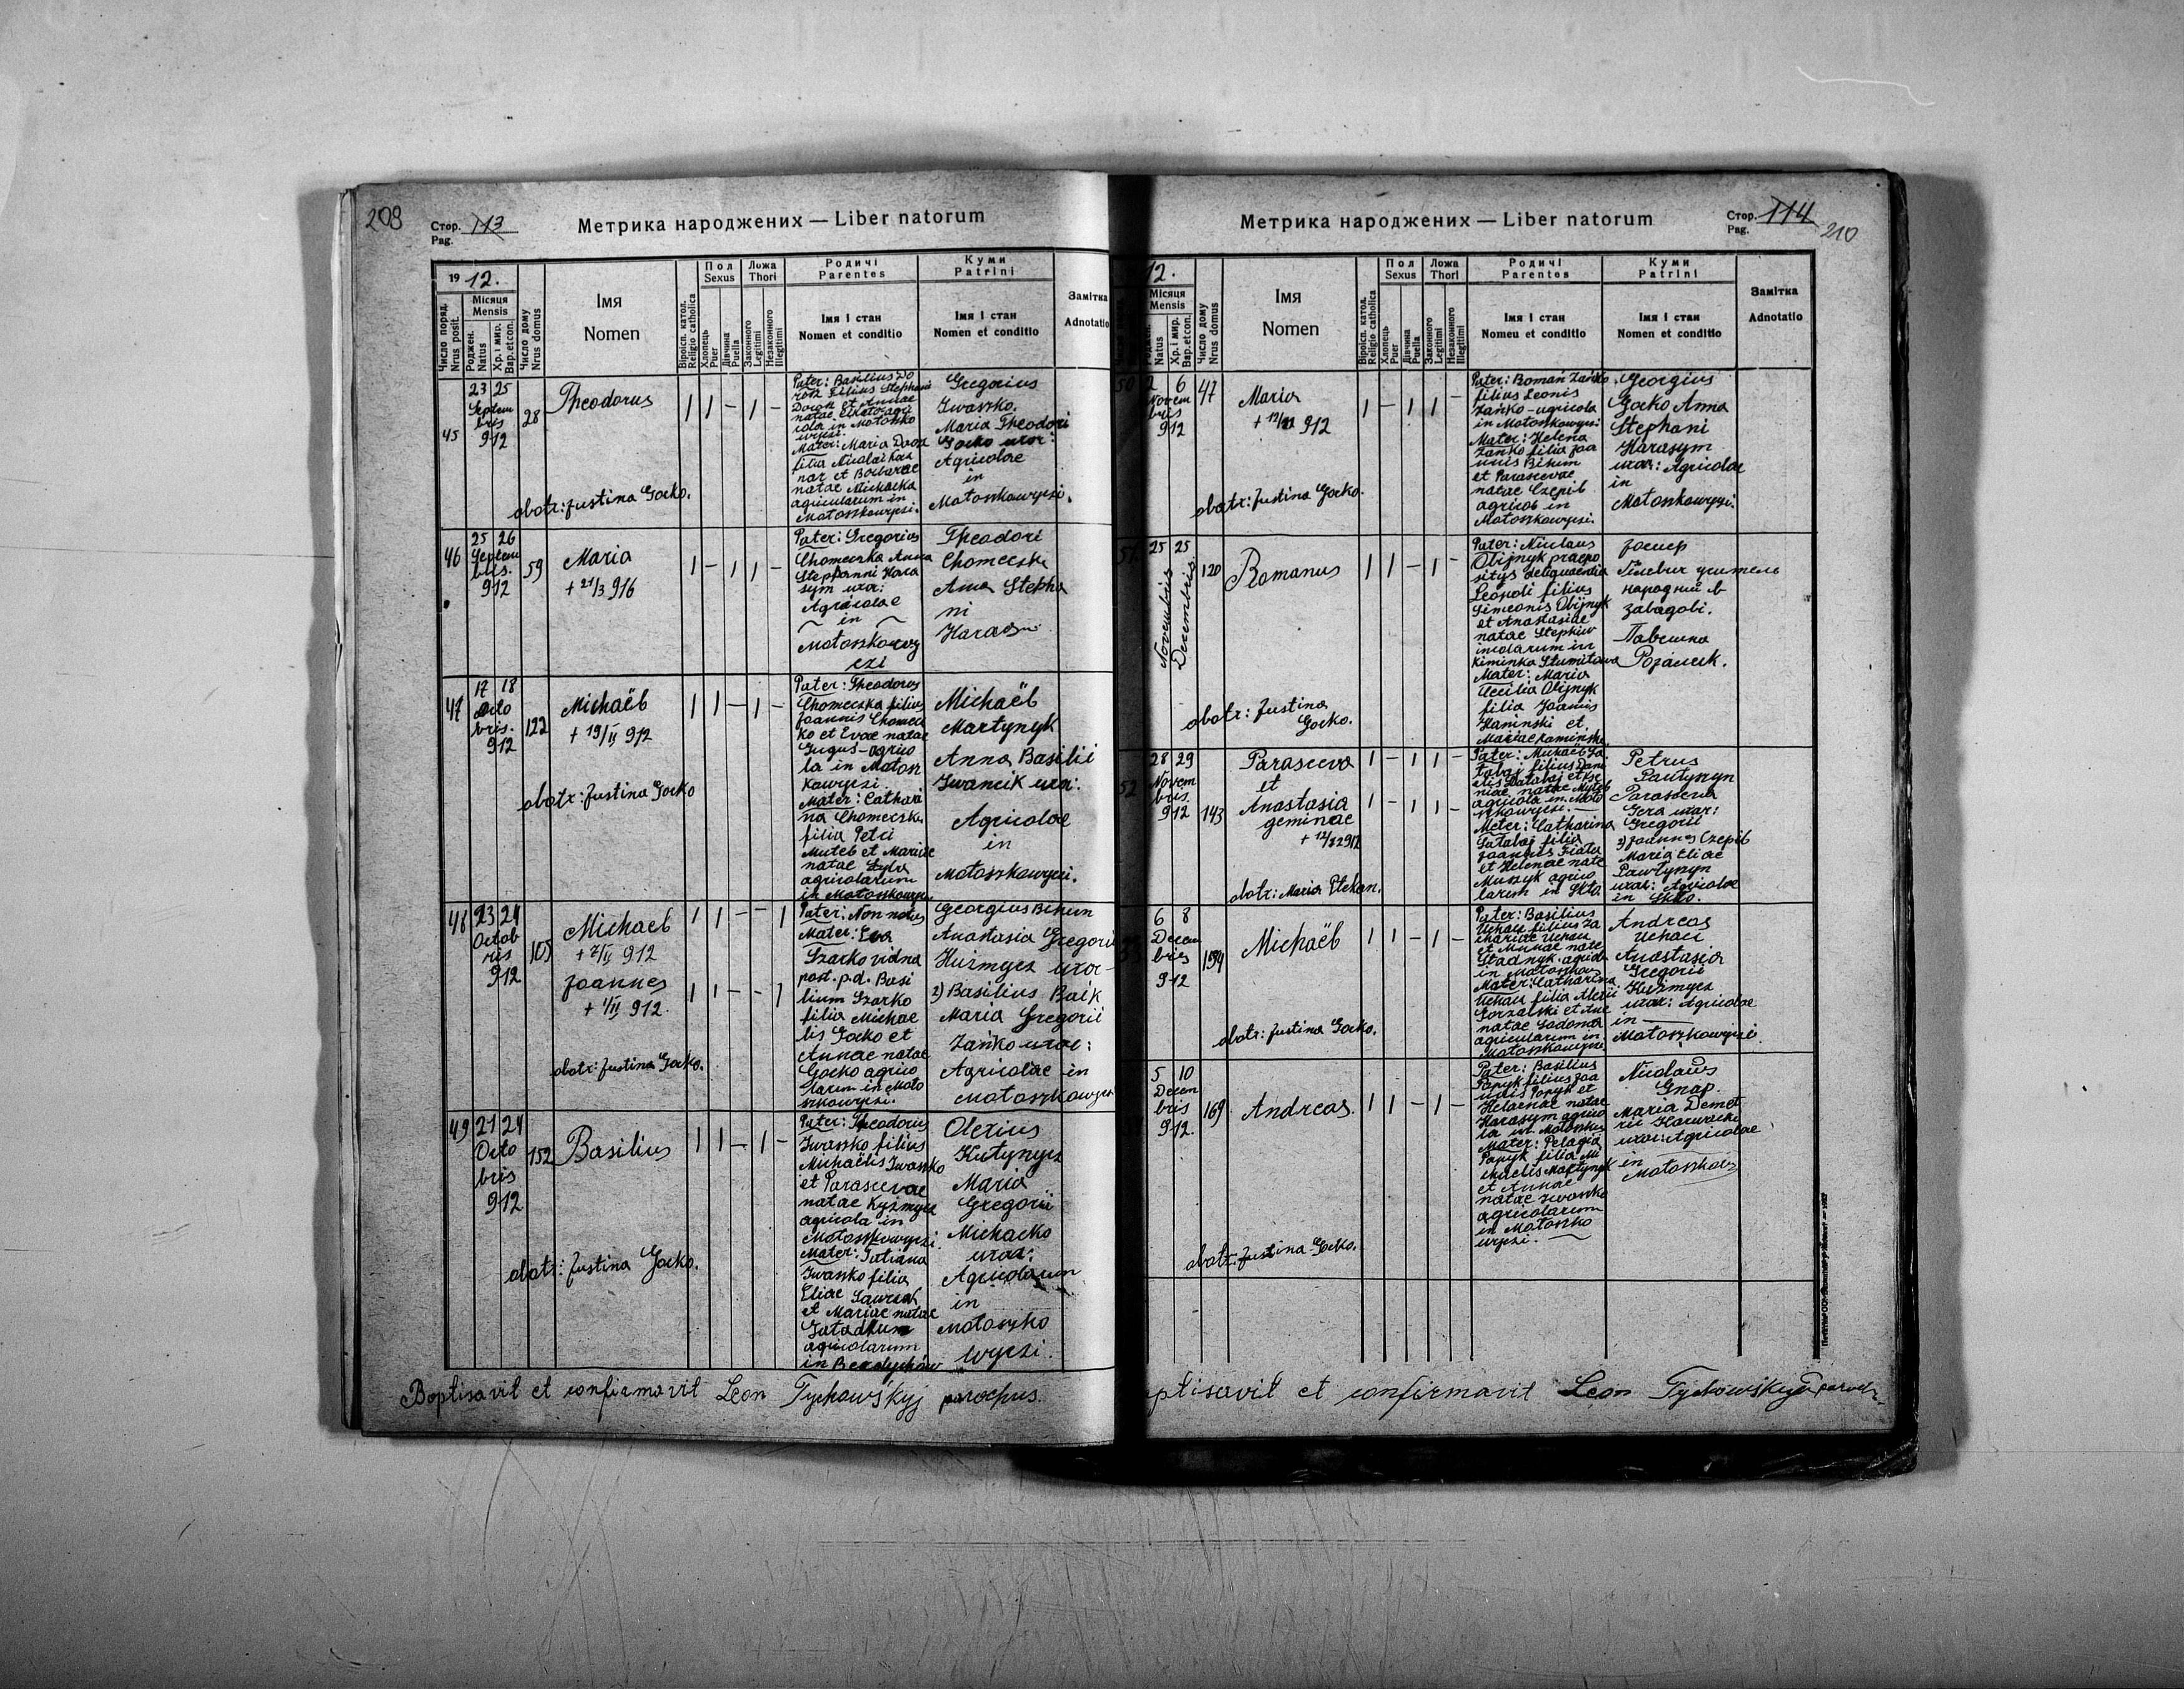 208
Стор. 113
Pag.
Метрика народжених — Liber natorum
19 12.
Число поряд.
Nrus posit.
Місяця
Mensis
Роджен.
Natus
Хр. і мир.
Bap. et con.
Число дому
Nrus domus
Імя
Nomen
Віроісп. катол.
Religio catholica
Пол
Sexus
Хлопець
Puer
Дівчина
Puella
Ложа
Thori
Законного
Legitimi
Незаконного
Illegitimi
Родичі
Parentes
Імя і стан
Nomen et conditio
Куми
Patrini
Імя і стан
Nomen et conditio
Замітка
Adnotatio
45
23 25
Septem
bris
912
28
Theodorus
1 1 – 1 –
obstr: Justina Gocko.
Pater: Basilius Do
rosz filius Stephani
Dorosz et Annae
natae
cola in Motoszko
wyczi.
Mater: Maria Dorosz
filia Nicolai
nar et Barbarae
natae Michacka
agricolarum in
Motoszkowyczi.
Gregorius
Iwaszko.
Maria Theodori
Gocko uxor:
Agricolae
in
Motoszkowyczi.
46
25 26
Septem
bris.
912
59
Maria
+ 21/3 916
1 – 1 1 –
Pater: Gregorius
Chomeczka Anna
Stephanni Hara
sym uxor:
Agricolae
~ in ~
Motoszkowy
czi
Theodori
Chomeczka
Anna Stepha
ni
Harasym
47
17 18
Octo
bris.
912
122
Michaël
+ 19/II 912
1 1 – 1 –
obstr: Justina Gocko
Pater: Theodorus
Chomeczka filius
Joannis Chomecz
ko et Evae natae
Gugus – agrico
la in Motosz
kowyczi.
Mater: Cathari
na Chomeczka
filia Petri
Muteb et Mariae
natae
agricolarum
in Motoszkowyczi
Michaël
Martynyk
Anna Basilii
Iwancik uxor:
Agricolae
in
Motoszkowyczi.
48
23 24
Octob
ris
912
105
Michael
+ 7/II 912
Joannes
+ 1/II 912.
1 1 – – 1
1 1 – – 1
obstr: Justina Gocko.
Pater: Non notus
Mater: Eva
Szarko vidna
post. p.d. Basi
lium Szarko
filia Michae
lis Gocko et
Annae natae
Gocko agrico
larum in Moto
szkowyczi.
Georgius Bihun
Anastasia Gregorii
Huzmycz uxor –
2) Basilius Baik
Maria Gregorii
Zańko uxor:
Agricolae in
Motoszkowyczi
49
21 24
Octo
bris
912
152
Basilius
1 1 – 1 –
obstr: Justina Gocko.
Pater: Theodorus
Iwaszko filius
Michaëlis Iwaszko
et Parascevae
natae Kuzmycz
agricola in
Motoszkowyczi.
Mater: Tatiana
Iwaszko filia
Eliae
et Mariae natae
agricolarum
in Berdychów
Olexius
Kutynycz
Maria
Gregorii
Michacko
uxor:
Agricolarum
in
Motoszko
wyczi.
Baptisavit et confirmavit Leon Tychowśkyj parochus.
Стор. 114
Pag.
210
Метрика народжених — Liber natorum
12.
Місяця
Mensis
Роджен.
Natus
Хр. і мир.
Bap. et con.
Число дому
Nrus domus
Імя
Nomen
Віроісп. катол.
Religio catholica
Пол
Sexus
Хлопець
Puer
Дівчина
Puella
Ложа
Thori
Законного
Legitimi
Незаконного
Illegitimi
Родичі
Parentes
Імя і стан
Nomeu et conditio
Куми
Patrini
Імя і стан
Nomen et conditio
Замітка
Adnotatio
50
2 6
Novem
bris
912
47
Maria
912
1 – 1 1 –
obstr: Justina Gocko.
Pater: Roman Zańko
filius Leonis
Zańko – agricola
in Motoszkowyczi
Mater: Helena
Zańko filia Joa
nnis Bihun
et Parascevae
natae Czepil
agricol in
Motoszkowyczi.
Georgius
Gocko Anna
Stephani
Harasym
uxor: Agricolae
in
Motoszkowyczi.
51
25 25
Novembris
Decembris
120
Romanus
1 1 – 1 –
obstr: Justina
Gocko.
Pater: Nicolaus
Olijnyk praepo
Leopoli filius
Simeonis Olijnyk
et Anastasiae
natae Stepkiw
incolarum in
Mater: Maria
Cecilia Olijnyk
filia Joannis
Kaminski et
Mariae Kaminska
учитель
народний в
52
28 29
Novem
bris.
912
143
Parasceva
et
Anastasia
geminae
912
1 – 1 1 –
1 – 1 1 –
obstr: Maria Ptekan.
Pater: Michaël Ja
tabaj filius Dani
agricola in Moto
szkowyczi.
Mater: Catharina
Tatabaj filia
Joannis
et Helenae nate
Muszyk agrico
larum in Skto
Petrus
Pautyszyn
Parasceva
Gera uxor:
Gregorii
2) Joannes Czepil
Maria Eliae
Pawtyszyn
uxor: Agricolae
in Skło.
53
6 8
Decem
bris
912
194
Michaël
1 1 – 1 –
obstr: Justina Gocko.
Pater: Basilius
Uchacz filius Za
chariae Uchacz
et Annae nate
Stadnyk. agrico
in Motoszkow
Mater: Catharina
Uchacz filia Alexii
Gorzalski et Ane
natae Sadomar
agricolarum in
Motoszkowyczi
Andreas
Uchacz
Anastasia
Gregorii
Kuzmycz
uxor: Agricolae
in
Motoszkowyczi
5 10
Decem
bris
912.
169
Andreas.
1 1 – 1 –
obstr: Justina Gocko.
Pater: Basilius
Papyk filius Joa
nnis Papyk et
Helaenae natae
Harasym agrico
la in Motoszkow
Mater: Pelagia
Papyk filia Mi
chaelis Martynyk
et Annae
natae Iwaszko
agricolarum
in Motoszko
wyczi.
Nicolaus
Gnap.
Maria Demet
rii
uxor: Agricolae
in
Motoszkow
ptisavit et confirmavit Leon Tychowśkyj paroch